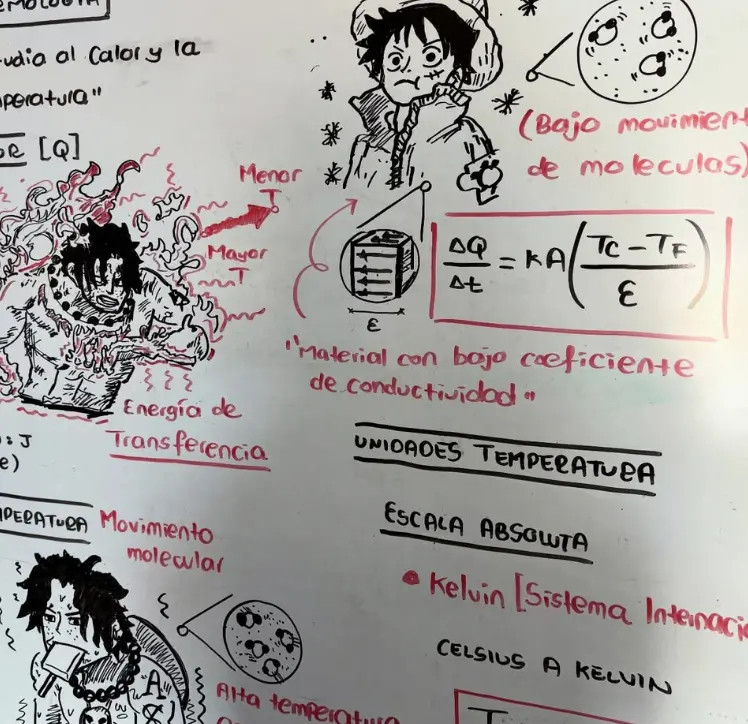 udia al Calor y la
peratura"
[Q]
Menor
T
Mayor
T
Energía de
Transferencia
: J
e)
(Bajo movimient
de moleculas)
ΔQ/Δt = kA((Tc - TF)/ε)
ε
"Material con bajo coeficiente
de conductividad"
UNIDADES TEMPERATURA
ESCALA ABSOLUTA
• Kelvin [Sistema Internacio
CELSIUS A KELVIN
T
PERATURA Movimiento
molecular
A
Alta temperatura